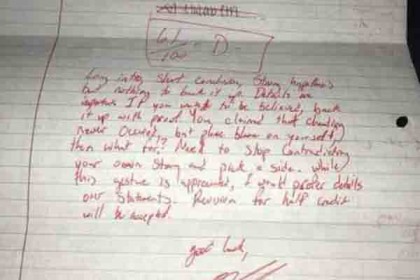 61/100 = D
Long intro, short conclusion, Strong hypothesis
but nothing to back it up. Details are
important IF you want to be believed, back
it up with proof. You claimed that cheating
never occurred, but place blame on yourself,
then what for!? Need to stop contradicting
your own story and pick a side. While
this gesture is appreciated, I would prefer details
over statements. Revision for half credit
will be accepted.
good luck,